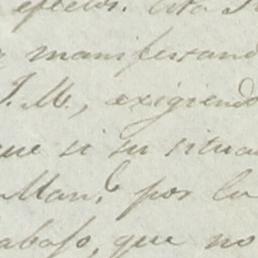 efectos. Esta
manifestand
J. M., exigiendo
que si su situa
Man.l por la
abajo, que no